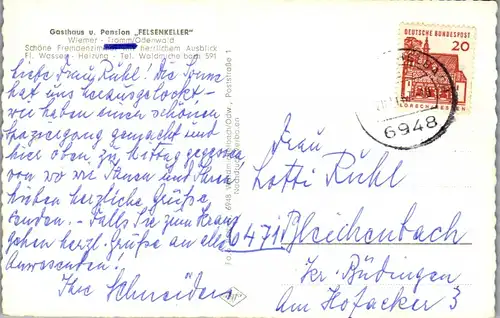 Gasthaus u. Pension „FELSENKELLER"
Wiemer - Tromm/Odenwald
Schöne Fremdenzimmer herrlichem Ausblick
Fl. Wasser - Heizung - Tel. Waldmichelbach 591
Liebe Frau Ruhl! Die Sonne
hat uns herausgelockt -
wir haben einen schönen
Spaziergang gemacht und
hier oben zu Mittag gegessen
von wo wir Ihnen und Ihren
Lieben herzliche Grüße
senden. - Falls Sie zum Kranz
gehen herzl. Grüße an alle
Anwesenden!
Ihre Schneiders
6948 Poststraße 1
DEUTSCHE BUNDESPOST
20
LORSCH/HESSEN
6948
Frau
Lotti Ruhl
6471 Bleichenbach
Kr. Büdingen
Am Hofacker 3